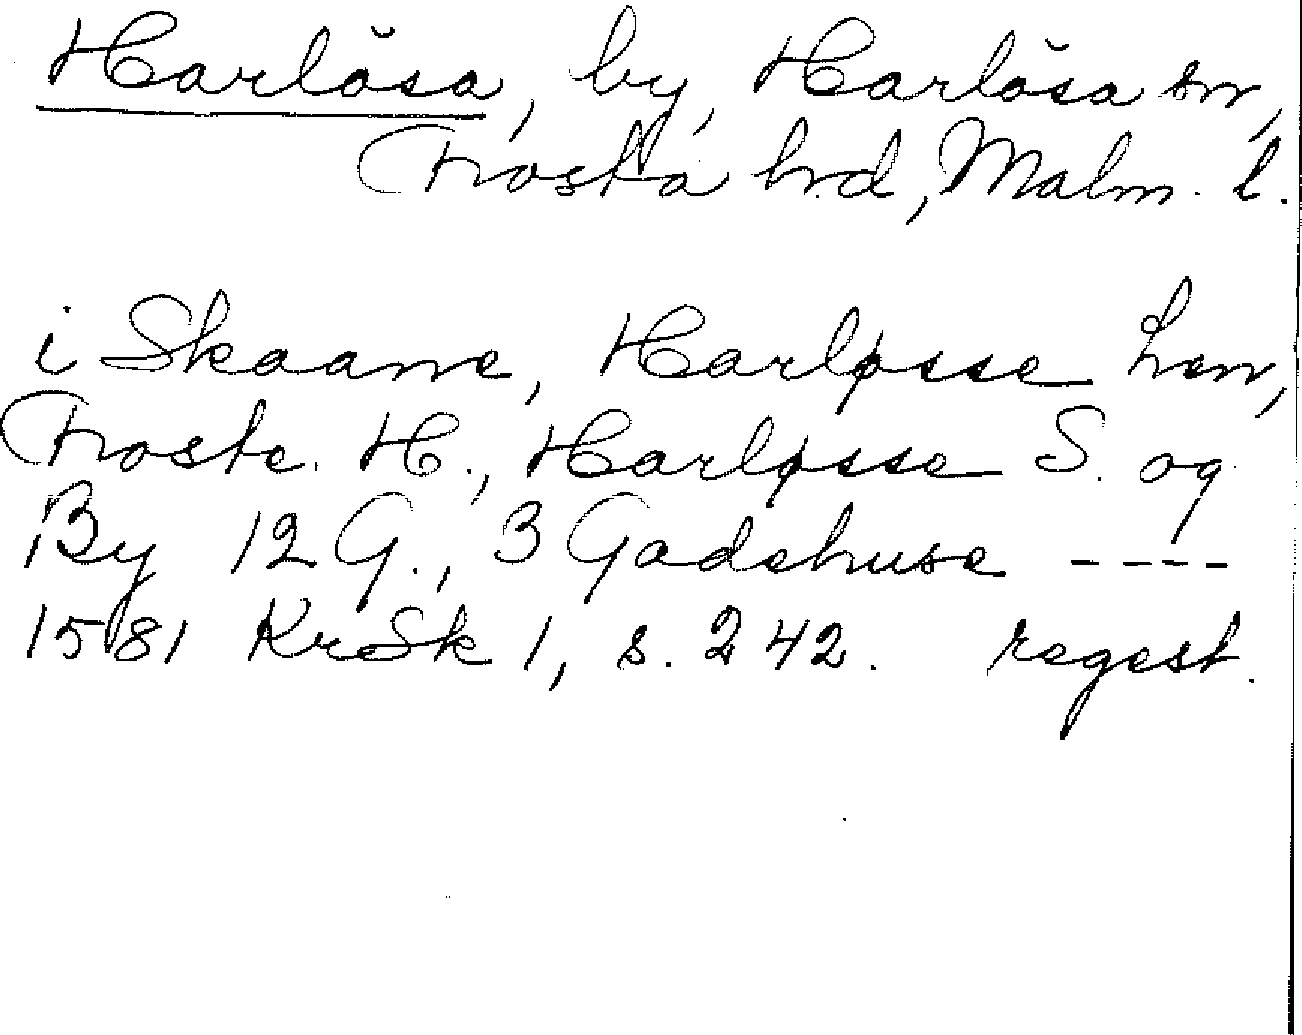 Harlösa, by, Harlösa sn,
Frosta hrd, Malm. l.
i Skaane, Harløsse Len,
Froste. H., Harløsse S. og
By 12 G., 3 Gadehuse ----
1581 KrSk 1, s. 242. regest.